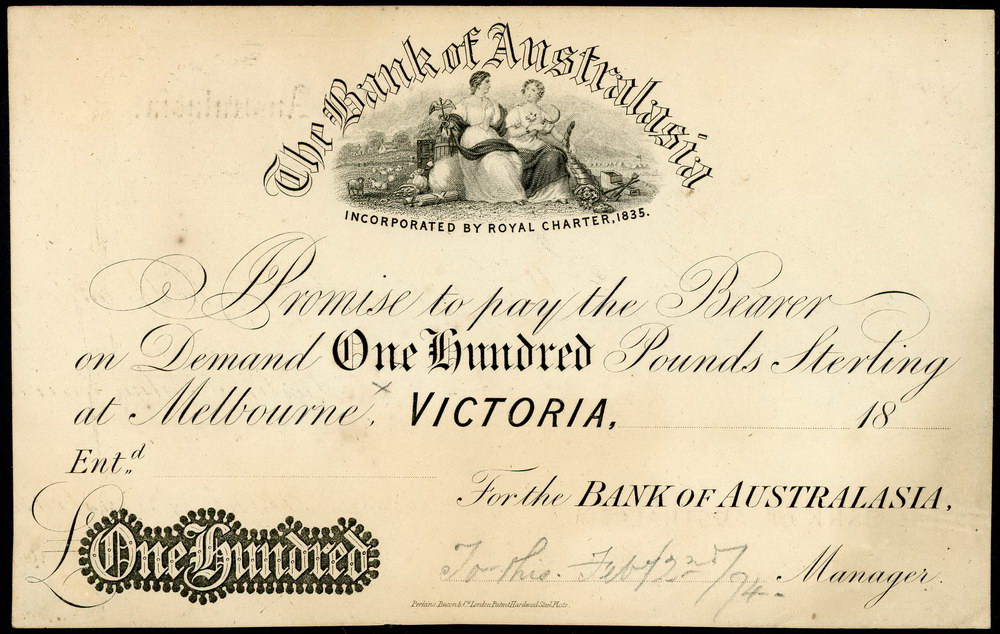 The Bank of Australasia
INCORPORATED BY ROYAL CHARTER, 1835.
I Promise to pay the Bearer
on Demand One Hundred Pounds Sterling
at Melbourne, x VICTORIA, 18
Ent.d
For the BANK OF AUSTRALASIA,
£ One Hundred
To this. Feby 22nd/74. Manager.
Perkins, Bacon & Co. London Patent Hardened Steel Plate.